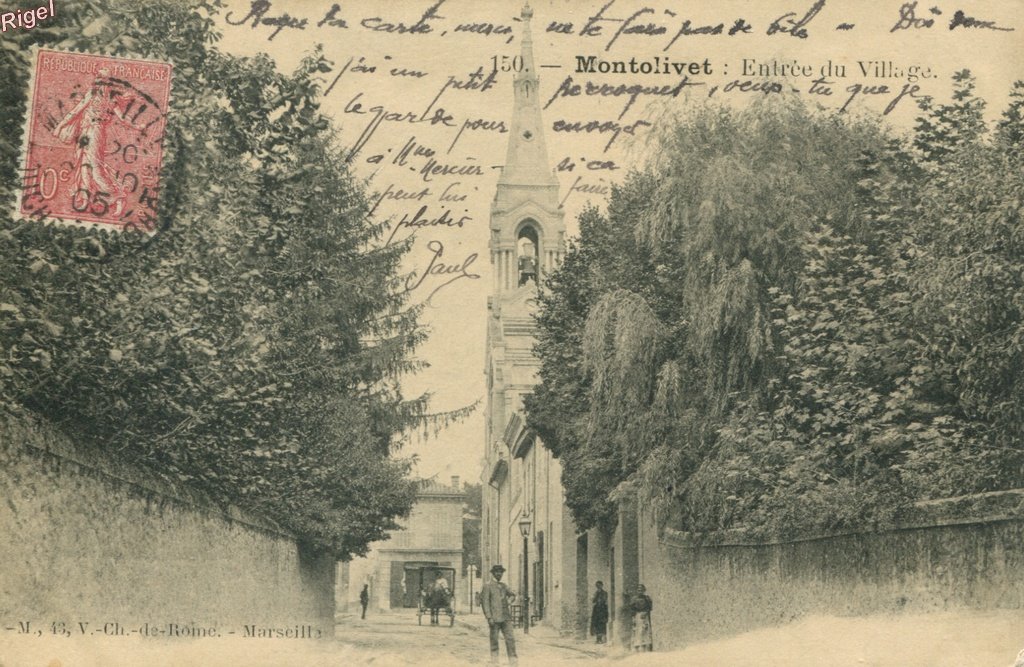 Rigel
ta carte, merci, ne te fais pas de bile - Dis donc
150. - Montolivet : Entrée du Village.
j'ai un petit perroquet, veux-tu que je
le garde pour envoyer
à Mme Mercier - si ça
peut lui faire
plaisir
Paul
REPUBLIQUE FRANÇAISE
10c
MARSEILLE
05
-M., 43, V.-Ch.-de-Rome. - Marseille